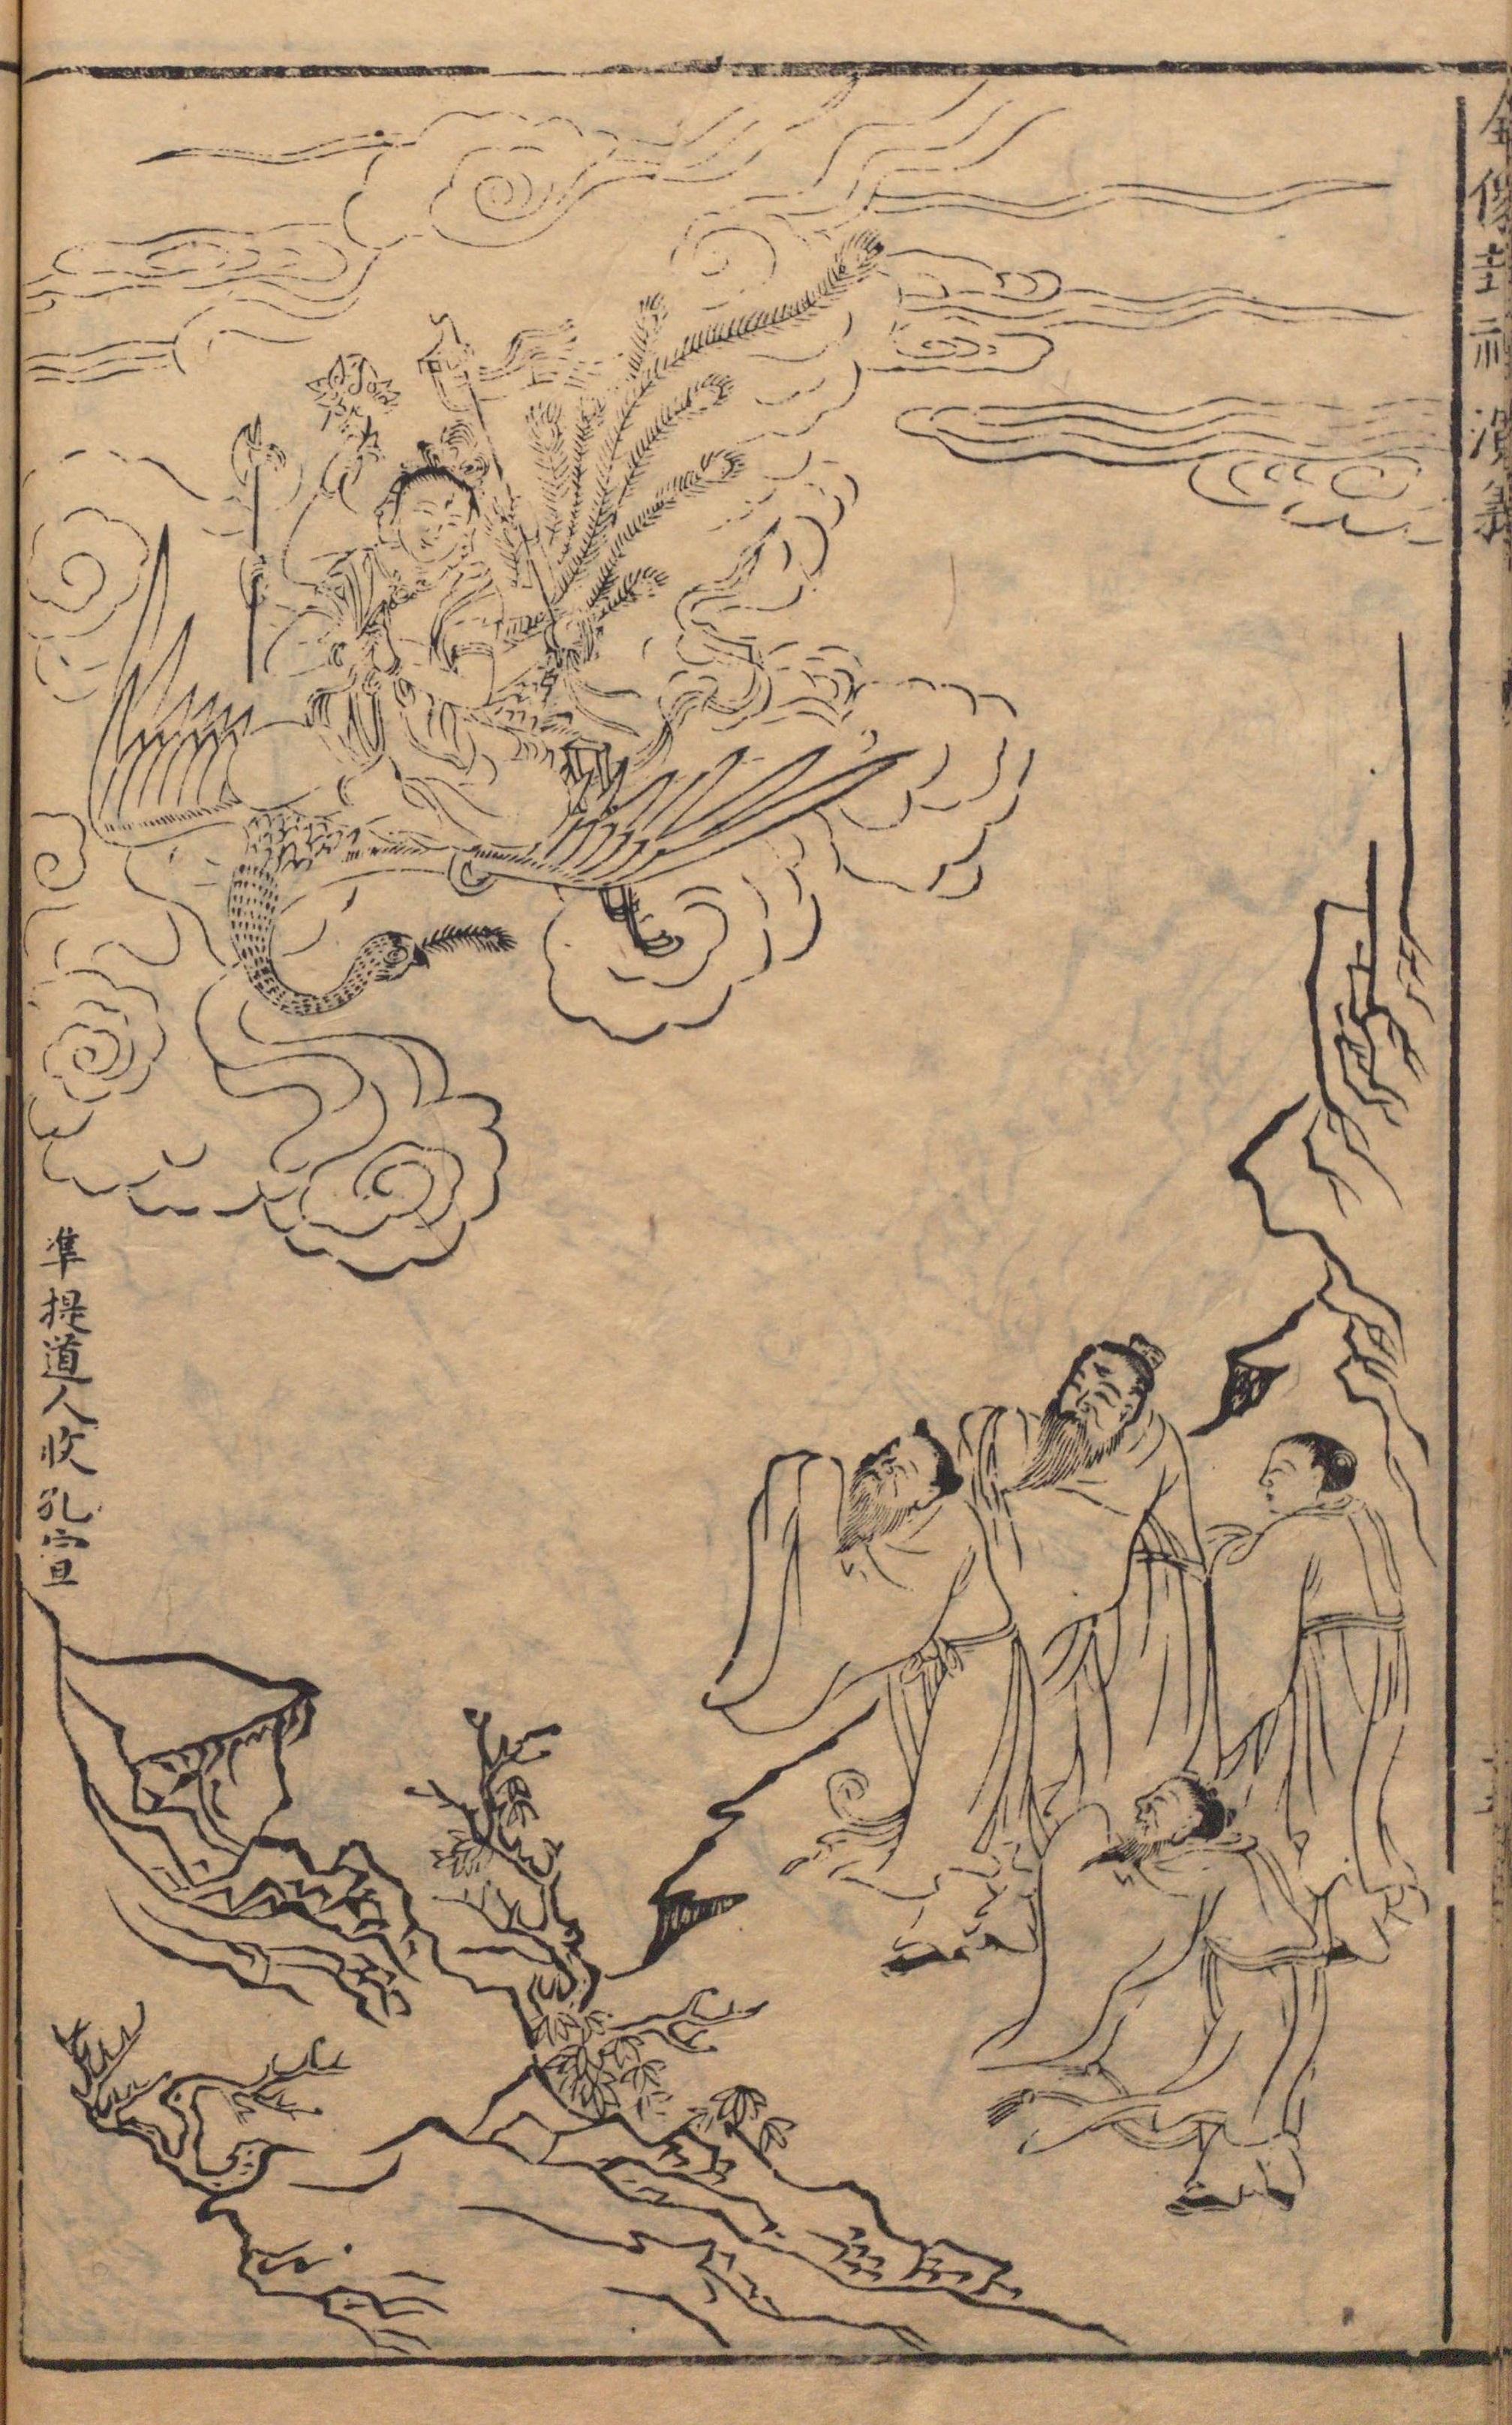 全像封神演義
準提道人收孔宣